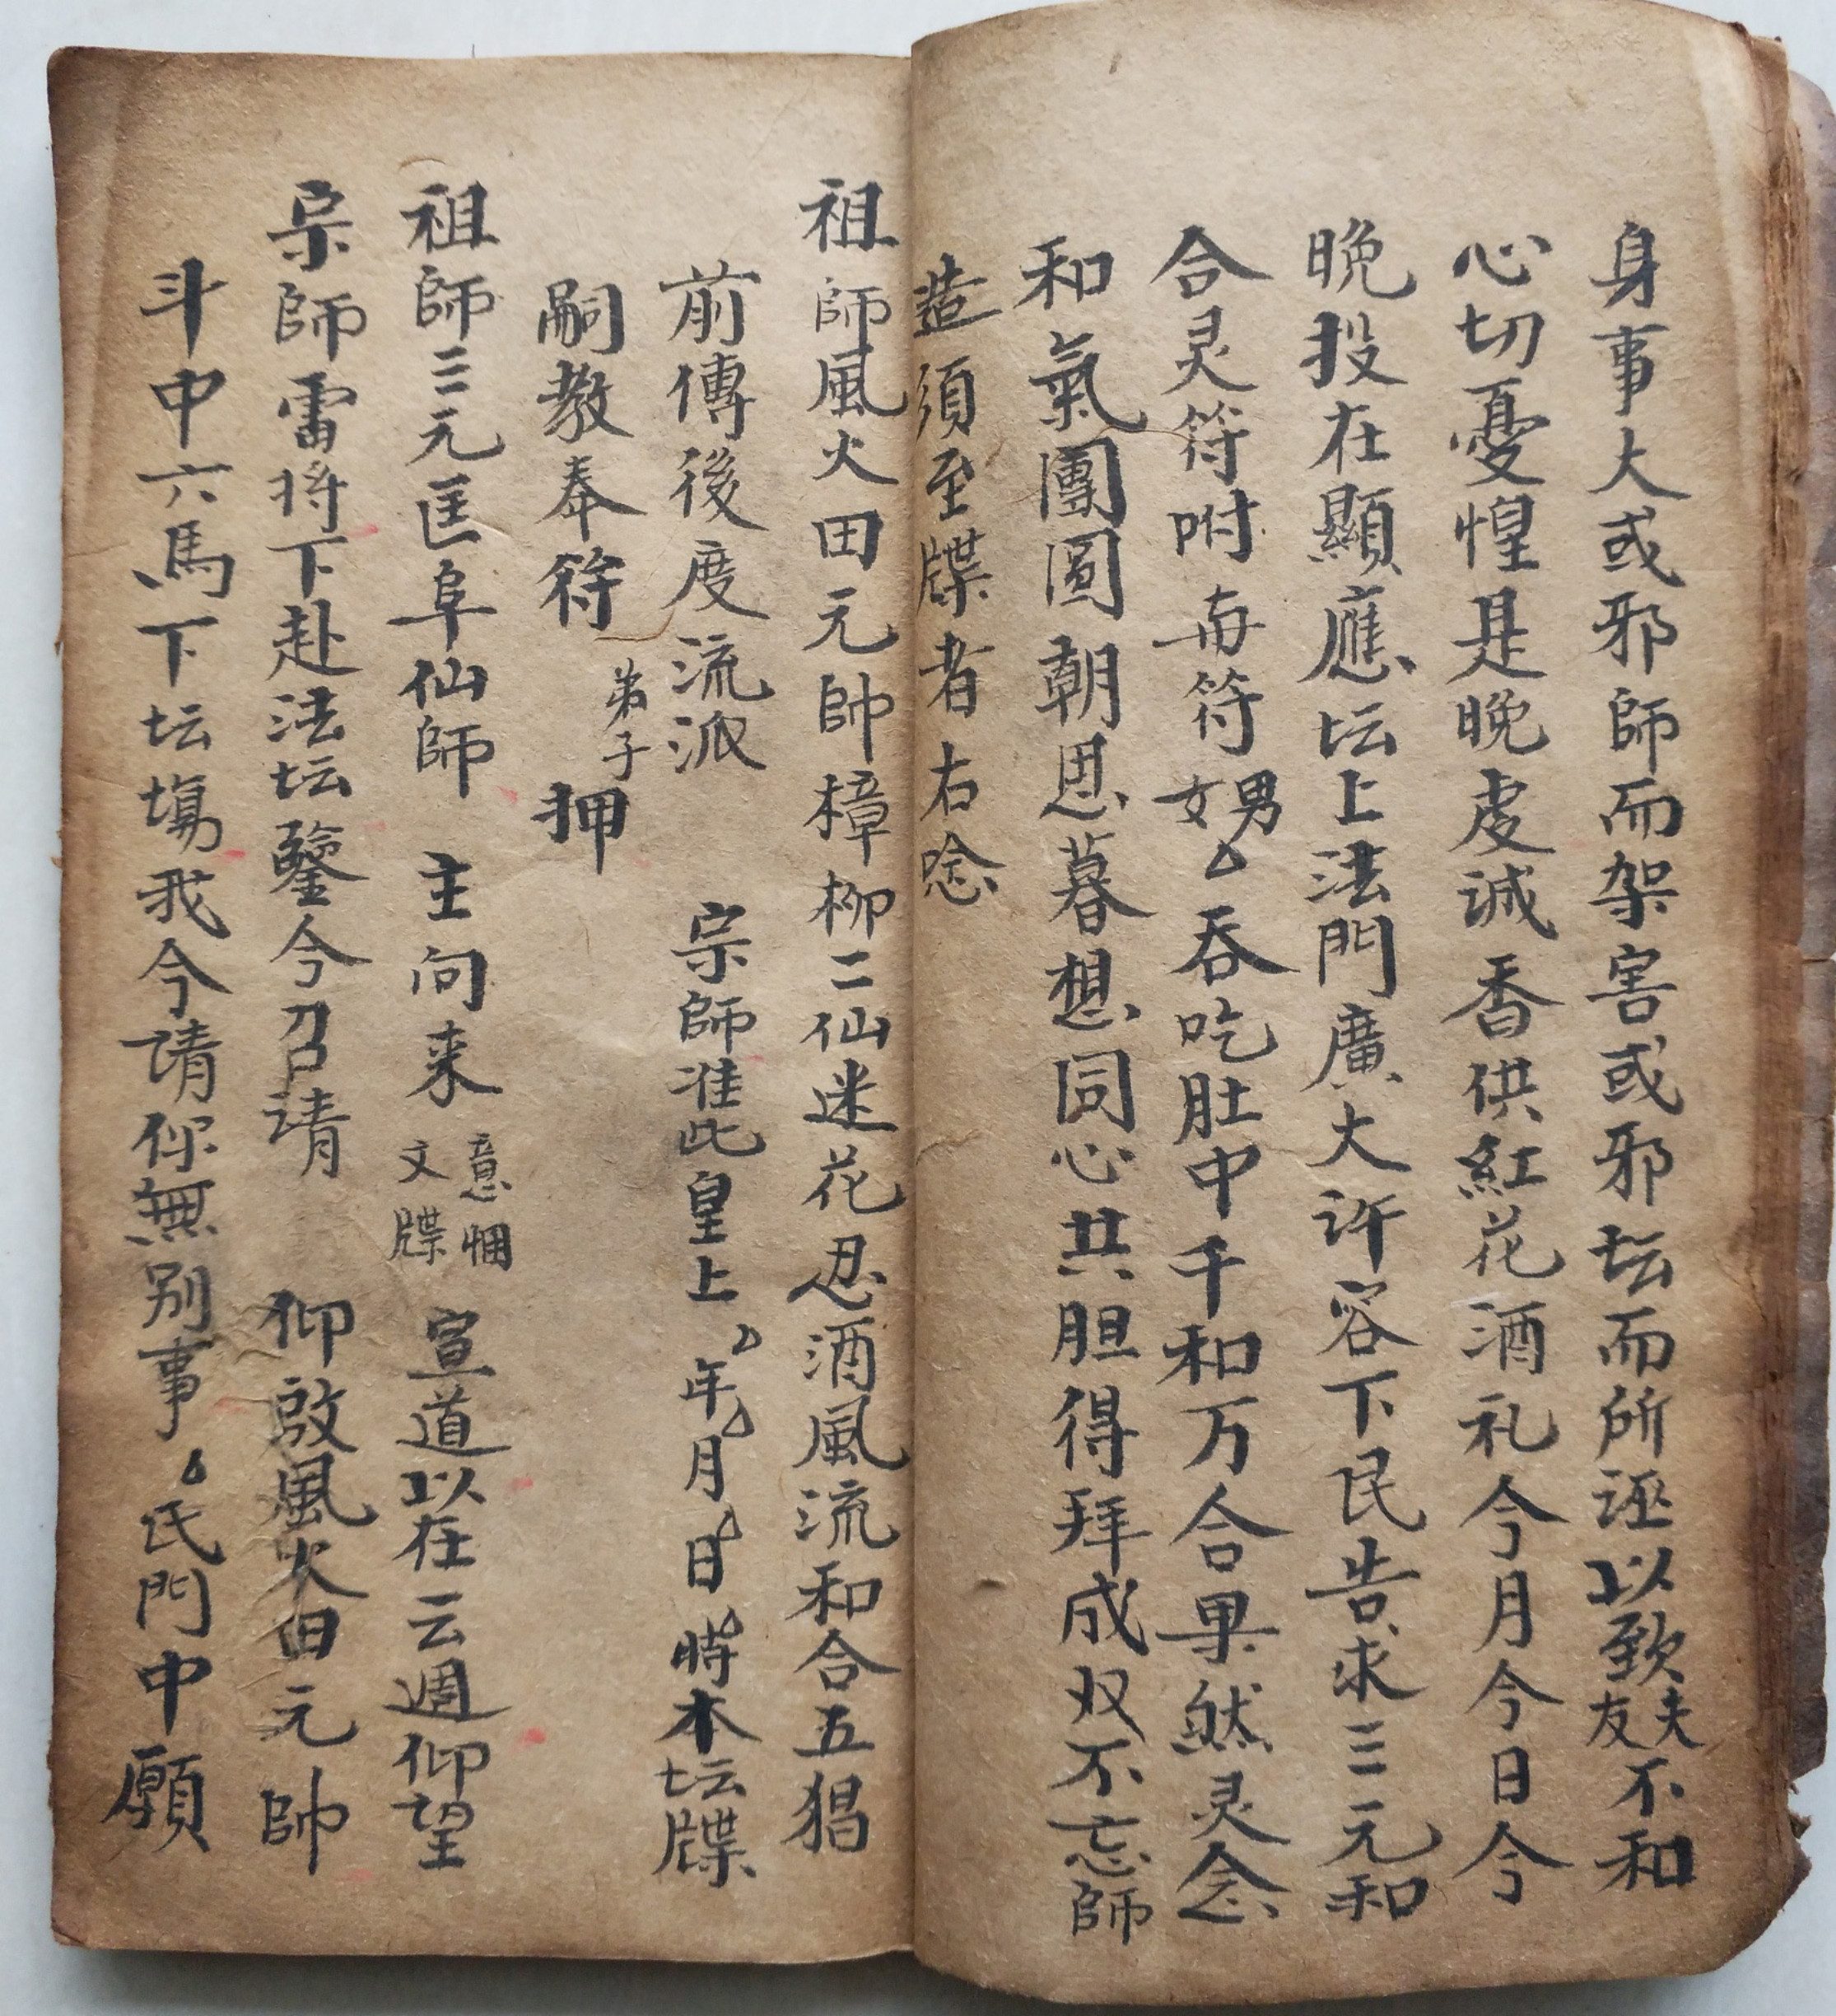 身事大或邪師而架害或邪坛而所誣以致夫友不和
心切憂惶是晚虔誠香供紅花酒礼今月今日今
晚投在顯應坛上法門廣大许容下民告求三元和
合灵符咐每符男女厶吞吃肚中千和万合果然灵念
和氣團圓朝思暮想同心共胆得拜成双不忘師
造須至牒者右唸
祖師風火田元帥樟柳二仙迷花忍酒風流和合五猖
前傳後度流派 宗師准此皇上 年 月 日 時本坛牒
嗣教奉符 弟子 押
祖師三元匡阜仙師 主向来 意悃文牒 宣道以在云週仰望
宗師雷将下赴法坛鑒今召請 仰啟風火田元帥
斗中六馬下坛塲我今請你無别事厶氏門中願